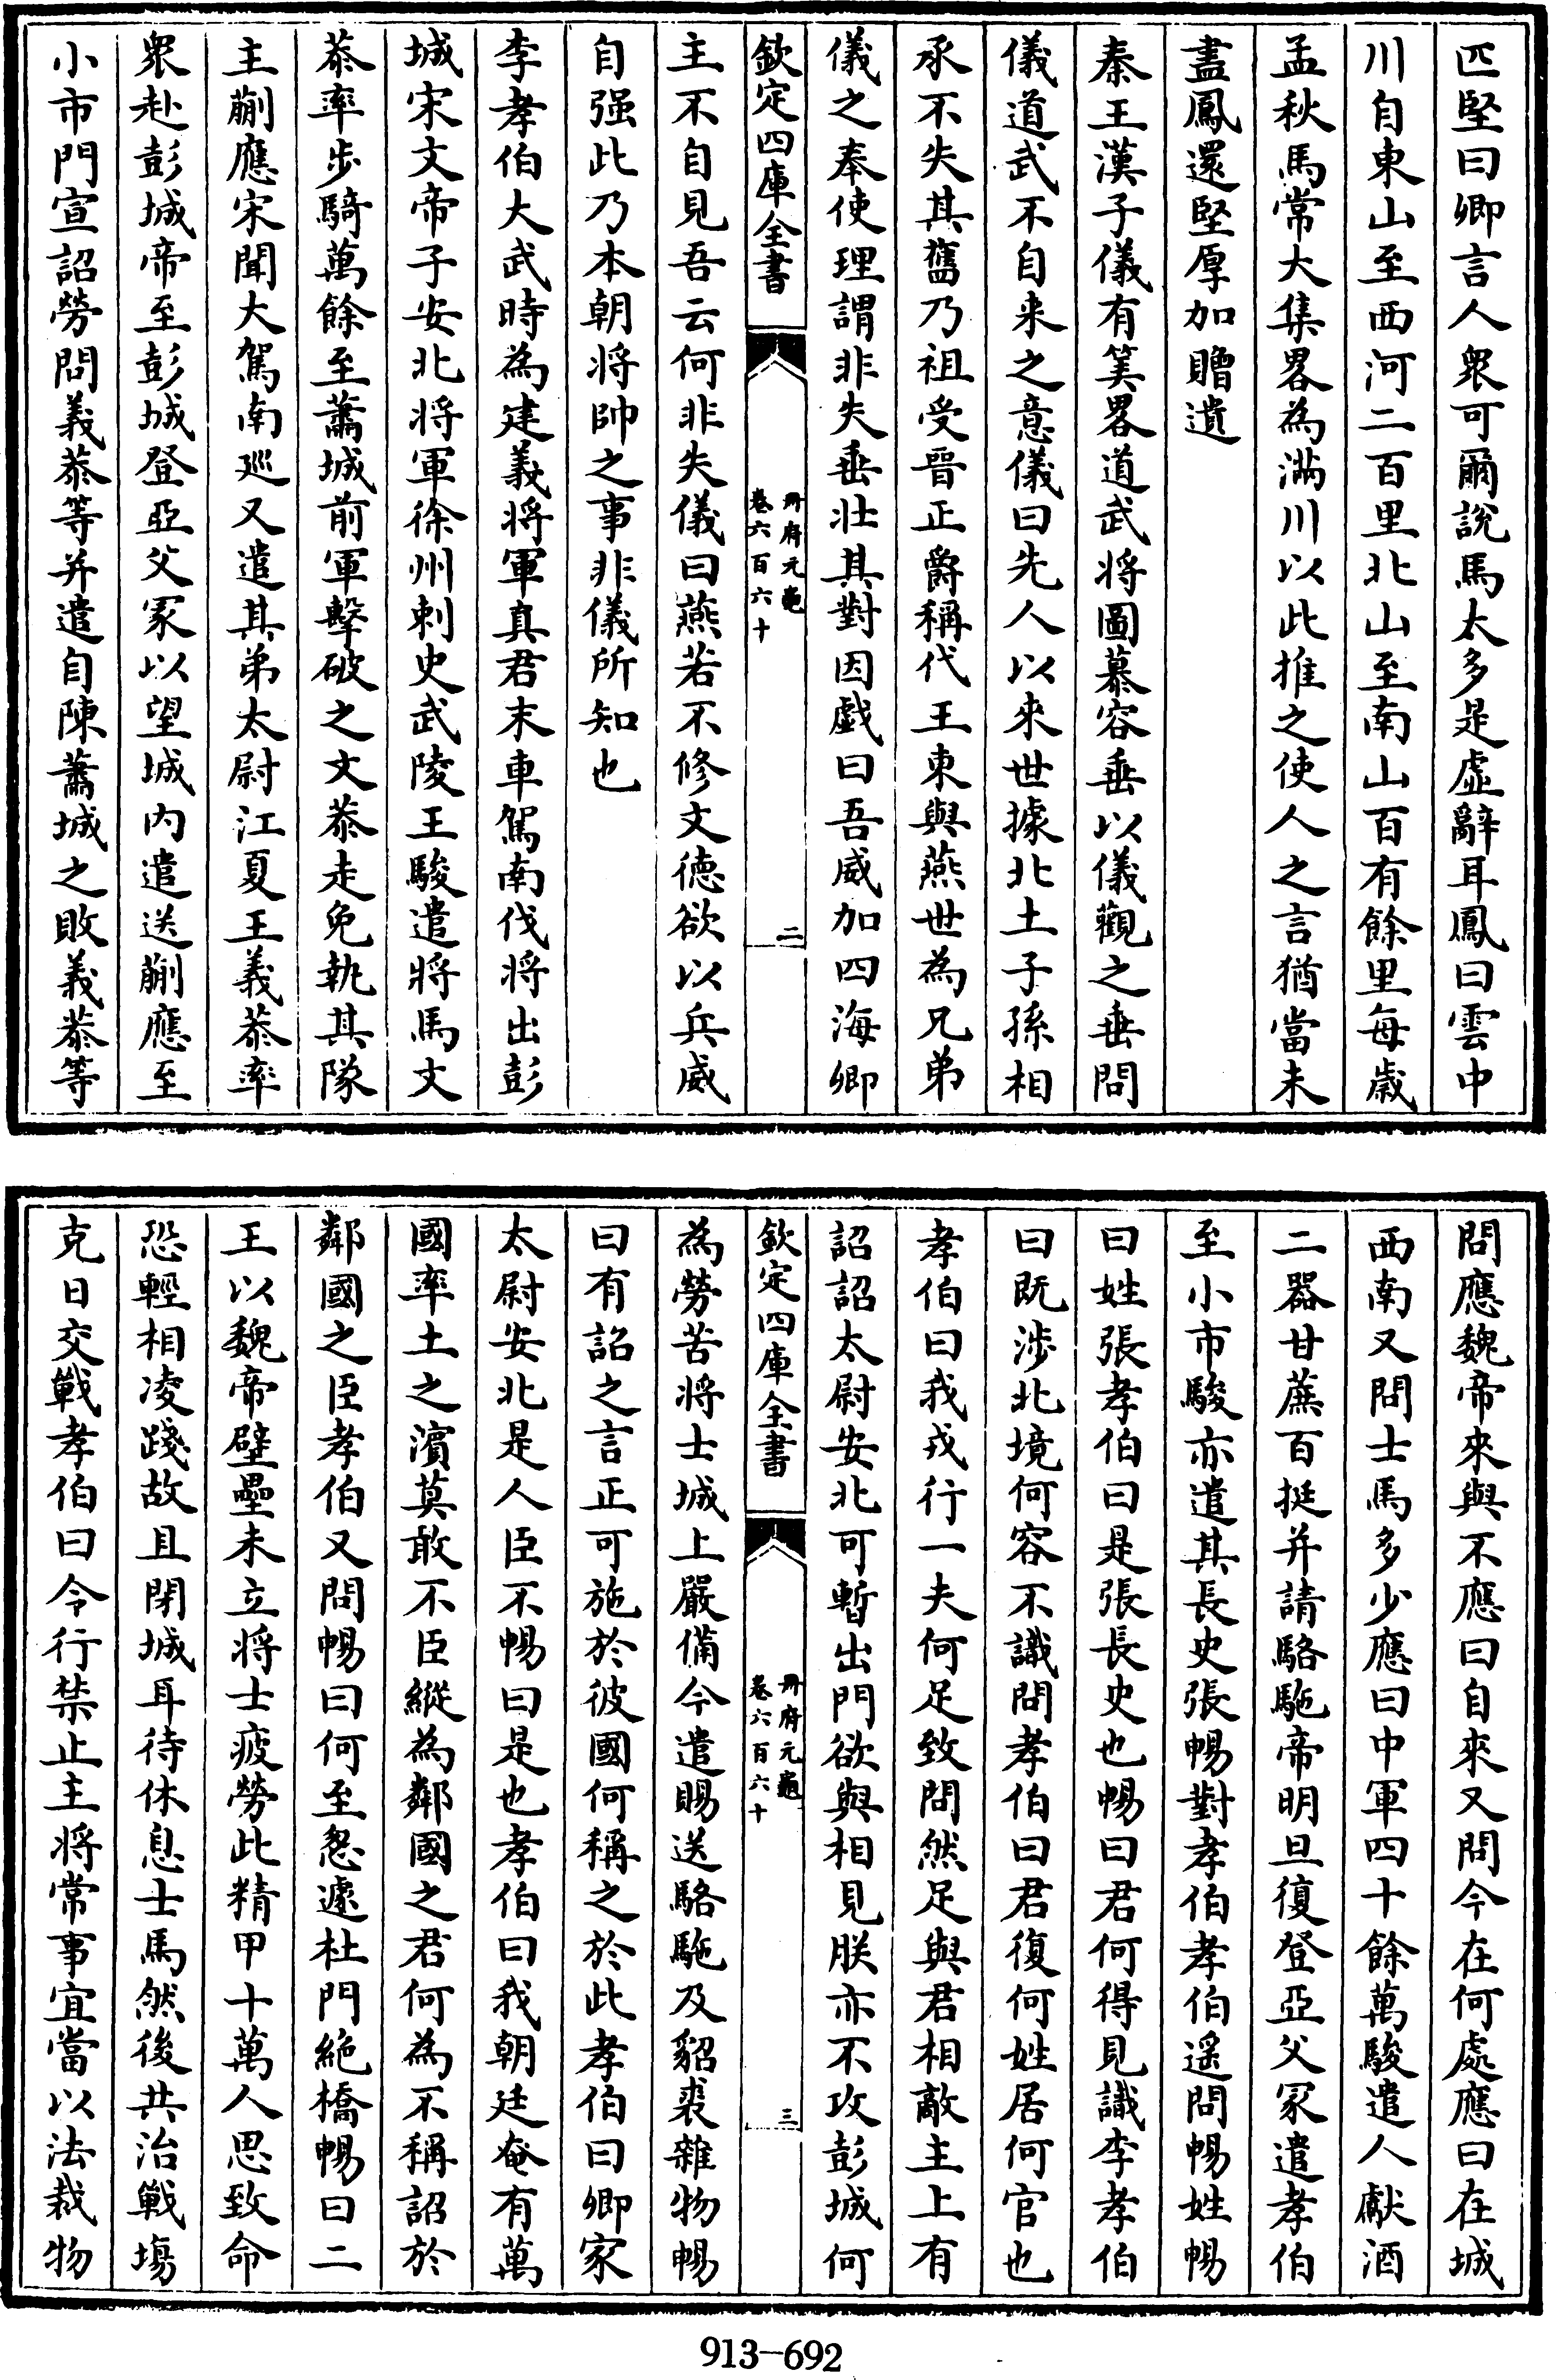 匹堅曰卿言人衆可爾說馬太多是虛辭耳鳳曰雲中
川自東山至西河二百里北山至南山百有餘里每歲
孟秋馬常大集畧為滿川以此推之使人之言猶當未
盡鳳還堅厚加贈遺
秦王漢子儀有筭畧道武将圖慕容垂以儀觀之垂問
儀道武不自来之意儀曰先人以來世據北土子孫相
承不失其舊乃祖受晉正爵稱代王東與燕世為兄弟
儀之奉使理謂非失垂壯其對因戲曰吾威加四海卿
欽定四庫全書
冊府元龜
卷六百六十
二
主不自見吾云何非失儀曰燕若不修文德欲以兵威
自强此乃本朝将帥之事非儀所知也
李孝伯大武時為建義将軍真君末車駕南伐将出彭
城宋文帝子安北将軍徐州刺史武陵王駿遣將馬文
恭率步騎萬餘至蕭城前軍擊破之文恭走免執其隊
主蒯應宋聞大駕南巡又遣其弟太尉江夏王義恭率
衆赴彭城帝至彭城登亞父冢以望城内遣送蒯應至
小市門宣詔勞問義恭等并遣自陳蕭城之敗義恭等
問應魏帝來與不應曰自來又問今在何處應曰在城
西南又問士馬多少應曰中軍四十餘萬駿遣人獻酒
二器甘蔗百挺并請駱駞帝明旦復登亞父冢遣孝伯
至小市駿亦遣其長史張暢對孝伯孝伯遥問暢姓暢
曰姓張孝伯曰是張長史也暢曰君何得見識李孝伯
曰既涉北境何容不識問孝伯曰君復何姓居何官也
孝伯曰我戎行一夫何足致問然足與君相敵主上有
詔詔太尉安北可暫出門欲與相見朕亦不攻彭城何
欽定四庫全書
冊府元龜
卷六百六十
三
為勞苦将士城上嚴備今遣賜送駱駞及貂裘雜物暢
曰有詔之言正可施於彼國何稱之於此孝伯曰卿家
太尉安北是人臣不暢曰是也孝伯曰我朝廷奄有萬
國率土之濱莫敢不臣縱為鄰國之君何為不稱詔於
鄰國之臣孝伯又問暢曰何至怱遽杜門絶橋暢曰二
王以魏帝壁壘未立将士疲勞此精甲十萬人思致命
恐輕相凌踐故且閉城耳待休息士馬然後共治戰塲
克日交戰孝伯曰令行禁止主将常事宜當以法裁物
913-692